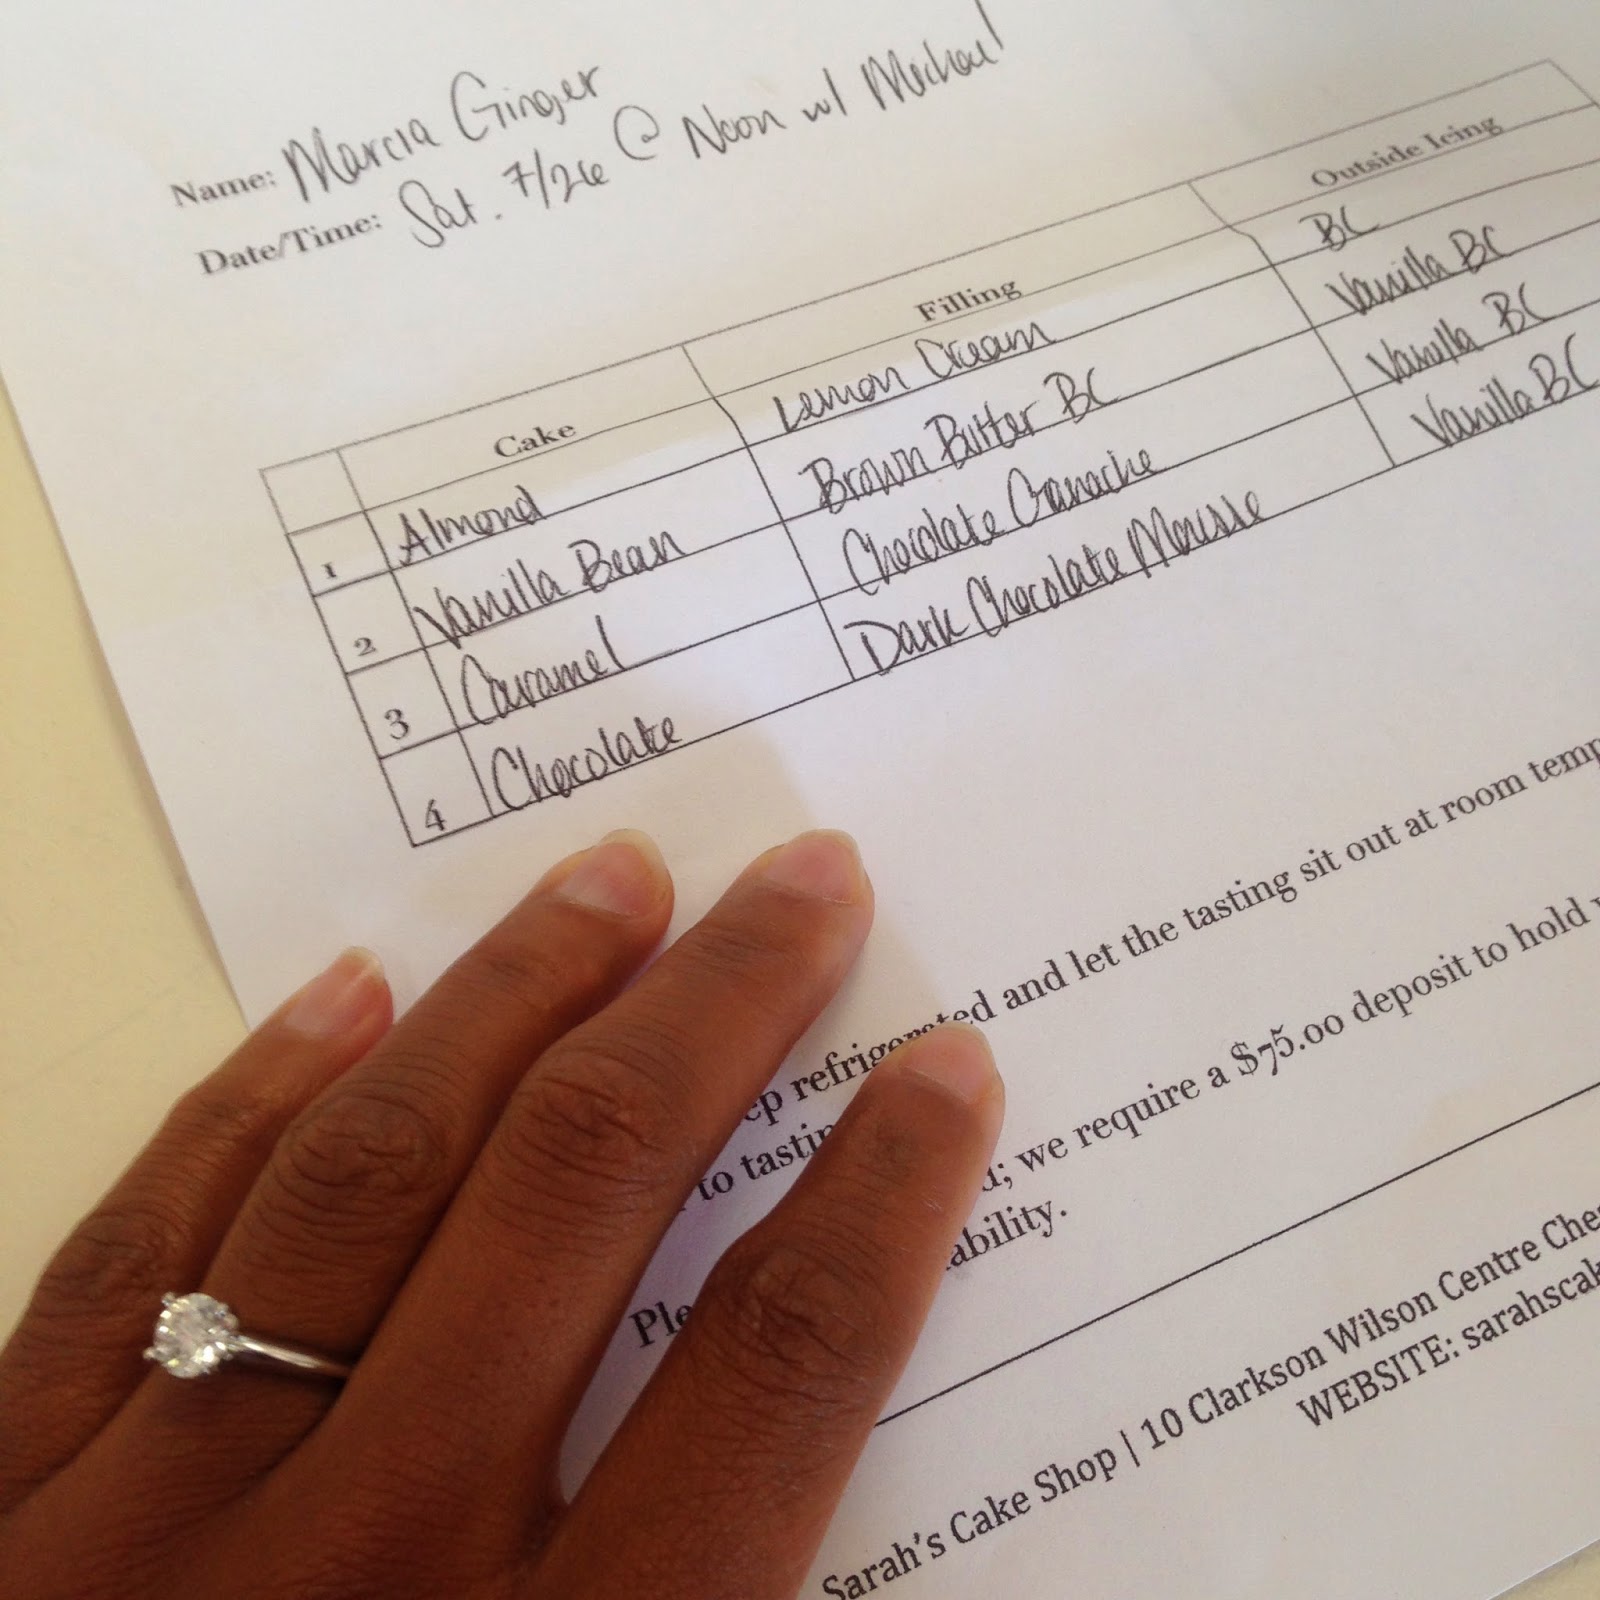 Name: Marcia Ginger
Date/Time: Sat. 7/26 @ Noon w/ Michael
Cake Filling Outside Icing
1 Almond Lemon Cream BC
2 Vanilla Bean Brown Butter BC Vanilla BC
3 Caramel Chocolate Ganache Vanilla BC
4 Chocolate Dark Chocolate Mousse Vanilla BC
refrigerated and let the tasting sit out at room temp
to we require a $75.00 deposit to hold
Sarah's Cake Shop | 10 Clarkson Wilson Centre Che
WEBSITE: sarahscak